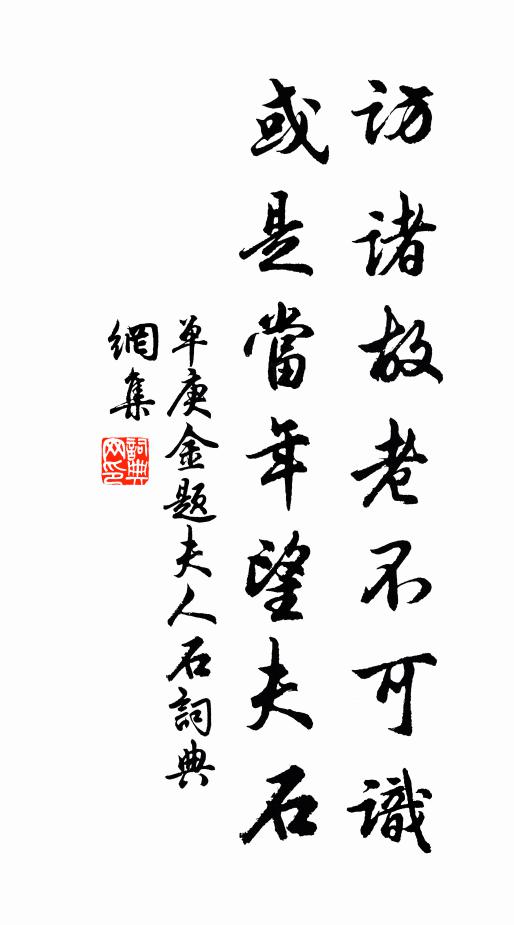 访诸故老不可識
或是當年望夫石
单庚金题夫人石詞典
網集
詞典网印